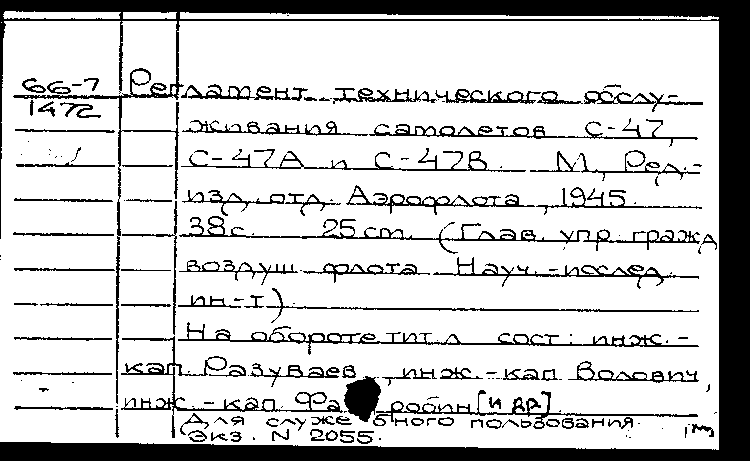 66-7
1472
Регламент технического обслу-
живания самолетов С-47,
С-47А и С-47В. М., Ред.-
изд. отд. Аэрофлота, 1945.
38 с. 25 см. (Глав. упр. гражд
воздуш флота. Науч.-исслед.
ин-т)
На обороте тит. л. сост.: инж.-
кап. Разуваев, инж.-кап. Волович,
инж.-кап. [и др.]
Для служебного пользования.
Экз. N 2055.